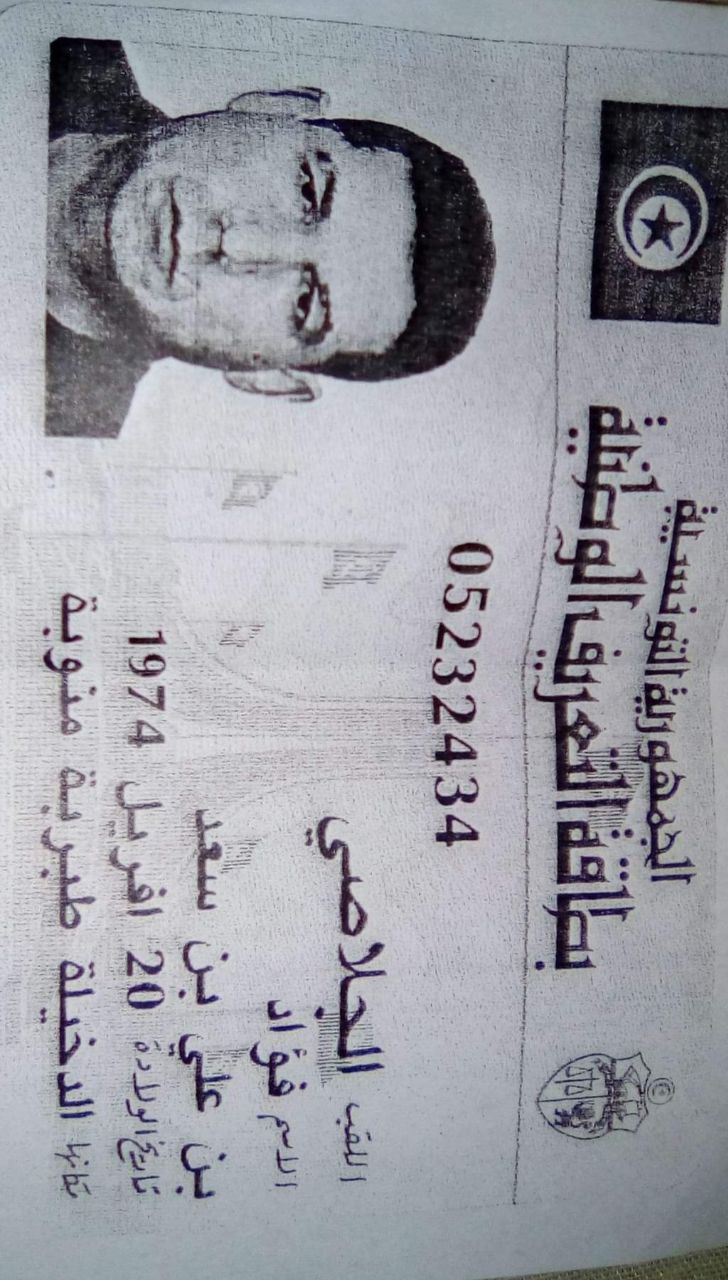 الجمهورية التونسية
بطاقة التعريف الوطنية
05232434
اللقب الجلاصي
الاسم فؤاد
بن علي بن سعد
تاريخ الولادة 20 افريل 1974
مكانها الدخيلة طبربة منوبة